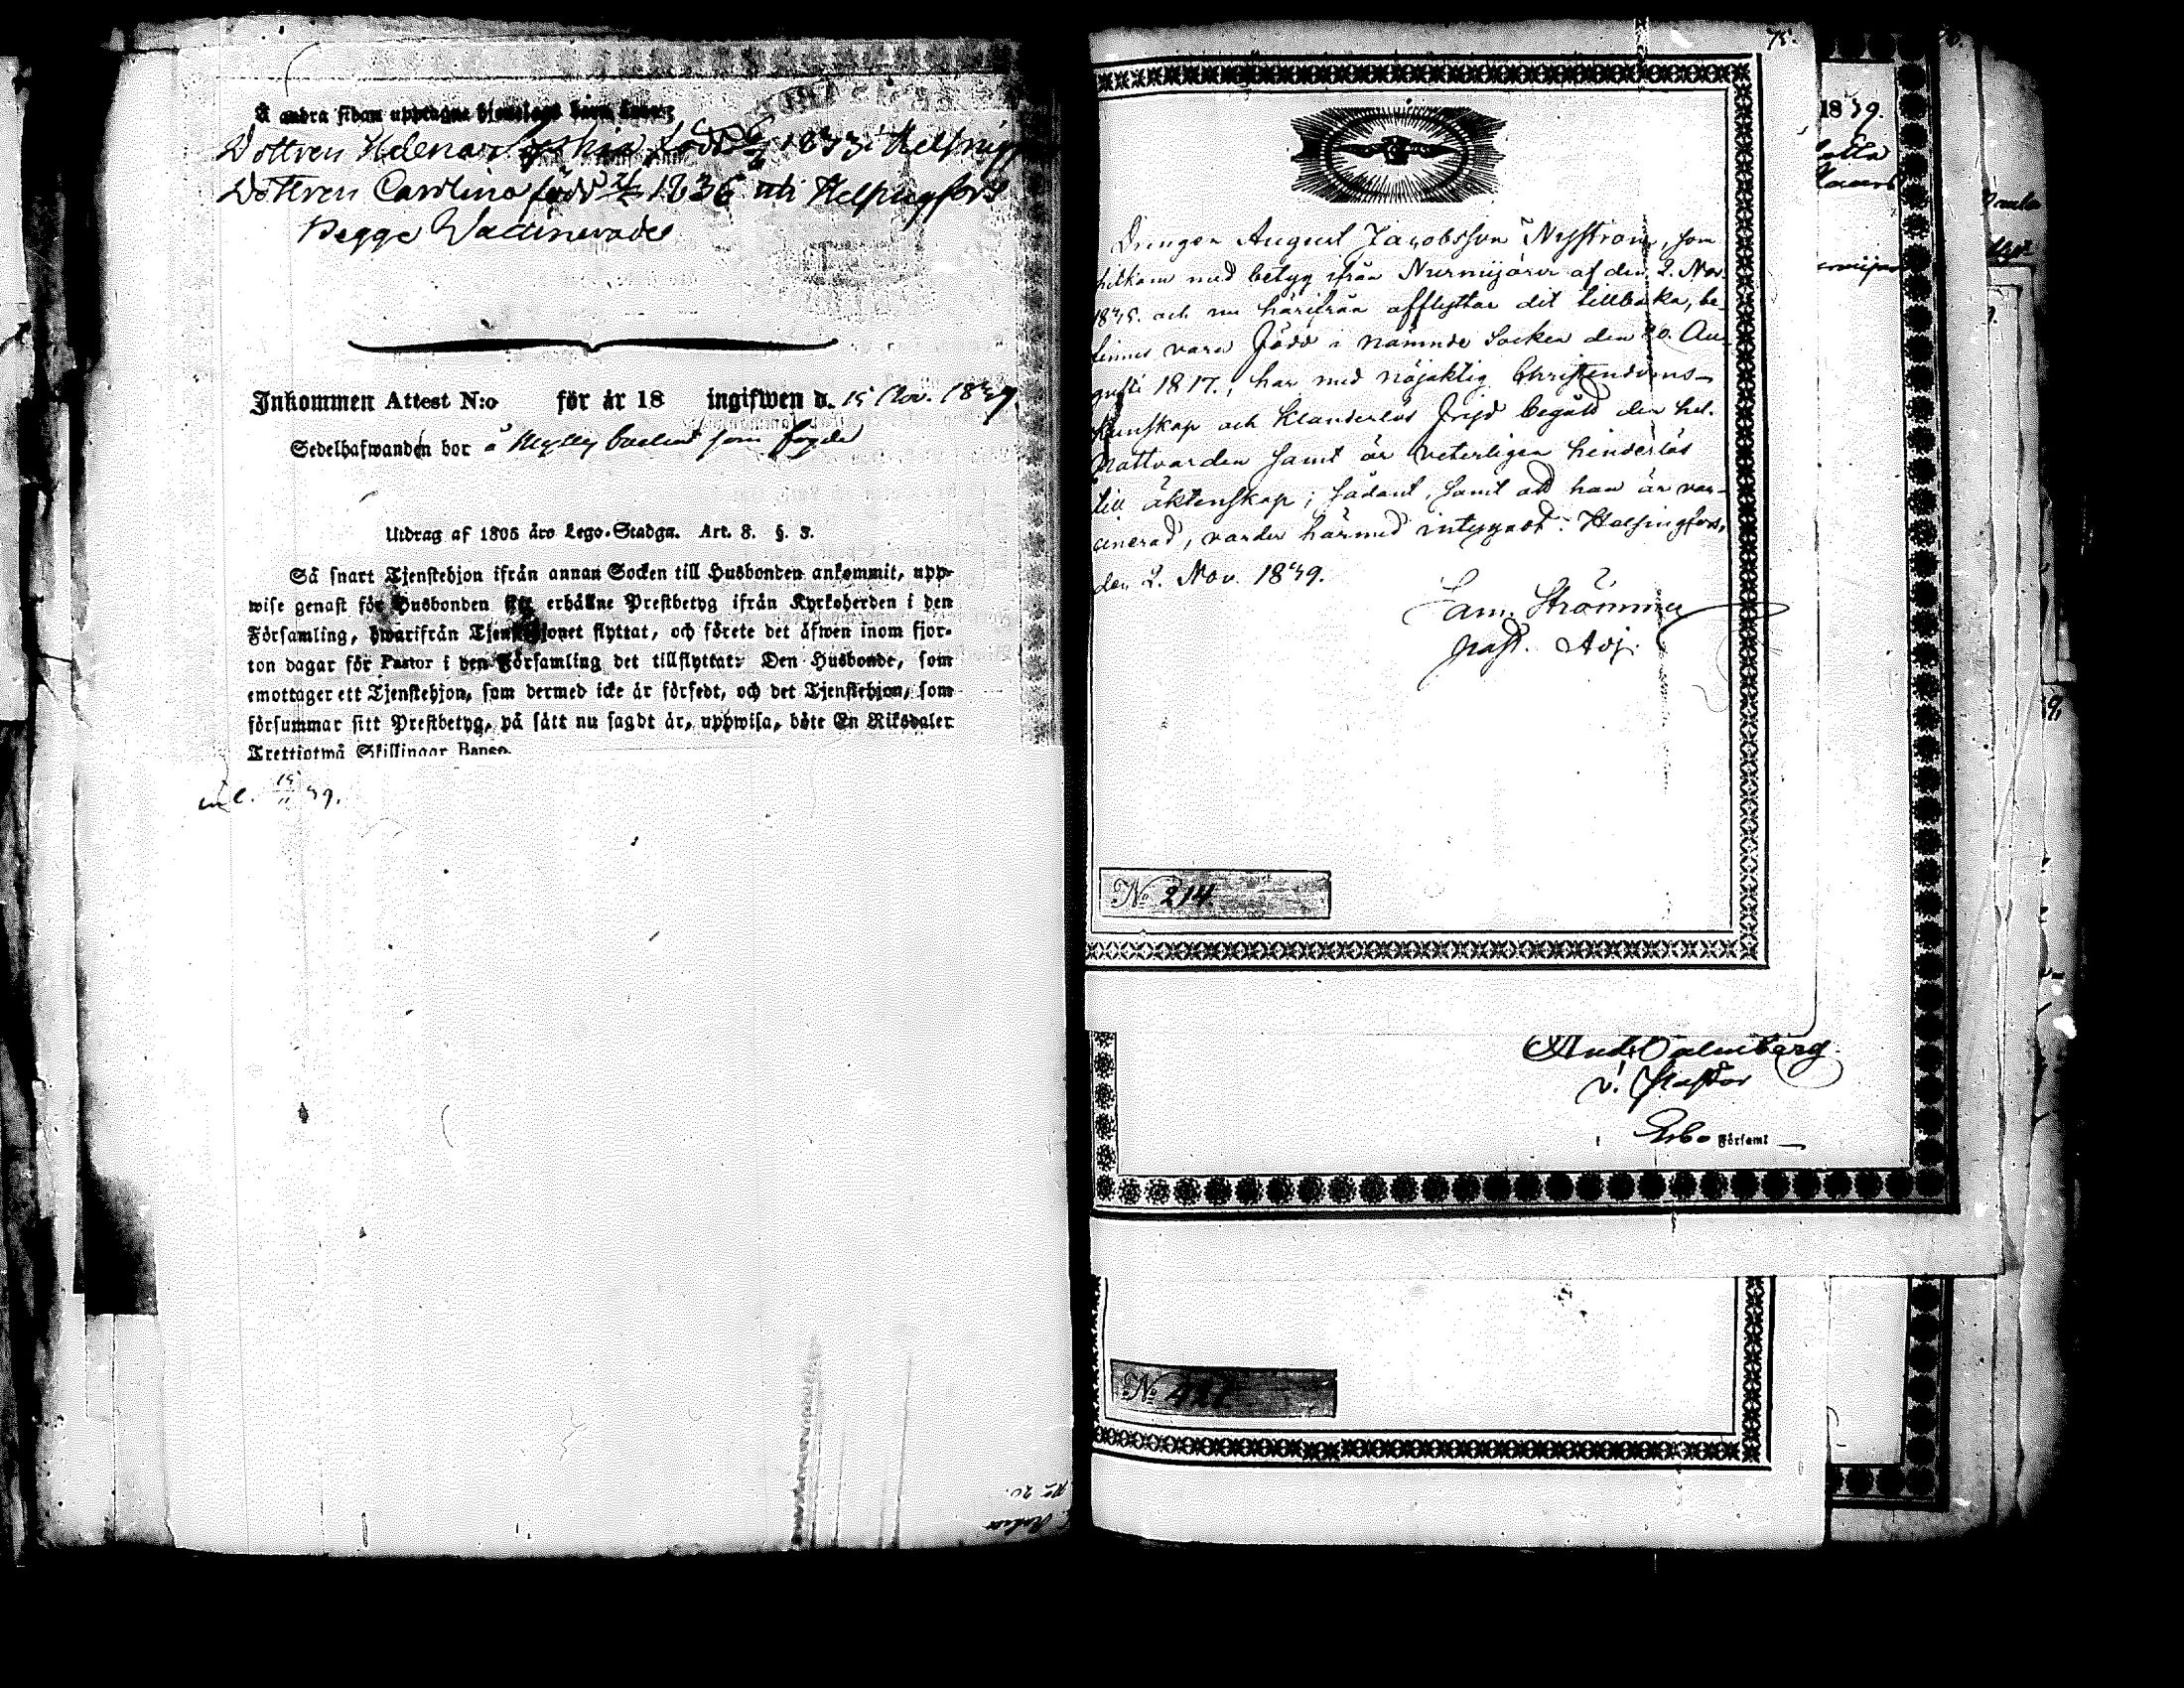 Å andra sidan upptagne hjonelags barn äro:
Dottren Helena Sophia född 1833 i Helsingf
Dottren Carolina född 1836 uti Helsingfors
Begge Vaccinerade
Inkommen Attest N:o för år 18 ingifwen d. 15 Nov. 1839
Sedelhafwanden bor å som fogde
Utdrag af 1805 års Lego-Stadga. Art. 3. §. 3.
Så snart Tjenstehjon ifrån annan Socken till Husbonden ankommit, upp-
wise genast för Husbonden sitt erhållne Prestbetyg ifrån Kyrkoherden i den
Församling, hwarifrån Tjenstehjonet flyttat, och förete det äfwen inom fjor-
ton dagar för Pastor i den Församling det tillflyttat. Den Husbonde, som
emottager ett Tjenstehjon, som dermed icke är försedt, och det Tjenstehjon, som
försummar sitt Prestbetyg, på sätt nu sagdt är, uppwisa, böte En Riksdaler
Trettiotwå Skillingar Banco.
inl. 15/11 39.
75.
Drengen August Jacobsson Nyström, som
hitkom med betyg ifrån Nurmijärvi af den 2. Nov.
1838. och nu härifrån afflyttar dit tillbaka, be-
finnes vara född i nämnde Socken den 20. Au-
gusti 1817., har med nöjaktig Christendoms-
kunskap och klanderlös frejd begått den hel.
Nattvarden samt är veterligen hinderlös
till äktenskap; sådant, samt att han är vac-
cinerad, varder härmed intygadt. Helsingfors,
den 2. Nov. 1839.
Sam. Strömmer
past. Adj.
No 214.
And. Palmberg
v. Pastor
i Esbo Församl
No
1839.